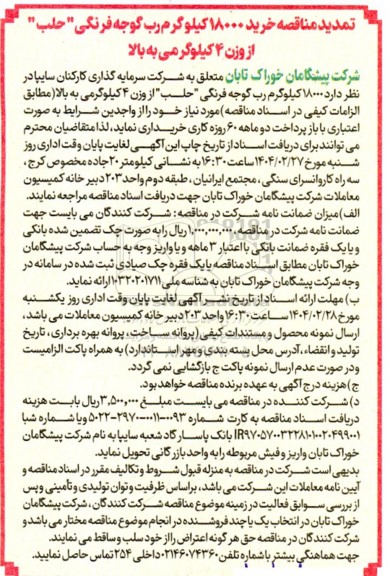 تمدید مناقصه خرید ۱۸۰۰۰ کیلو گرم رب گوجه فرنگی "حلب"
از وزن ۴ کیلوگرمی به بالا
شرکت پیشگامان خوراک تابان متعلق به شرکت سرمایه گذاری کارکنان سایپا در
نظر دارد ۱۸۰۰۰ کیلوگرم رب گوجه فرنگی "حلب" از وزن ۴ کیلوگرمی به بالا (مطابق
الزامات کیفی در اسناد مناقصه) مورد نیاز خود را از واجدین شرایط به صورت
اعتباری با باز پرداخت دو ماهه ۶۰ روزه کاری خریداری نماید، لذا متقاضیان محترم
می توانند برای دریافت اسناد از تاریخ چاپ این آگهی لغایت پایان وقت اداری روز
شنبه مورخ ۱۴۰۴/۰۲/۲۷ ساعت ۱۶:۳۰ به نشانی کیلومتر ۲۰ جاده مخصوص کرج ،
سه راه کاروانسرای سنگی ، مجتمع ایرانیان ، طبقه دوم واحد ۲۰۳ دبیر خانه کمیسیون
معاملات شرکت پیشگامان خوراک تابان جهت دریافت اسناد مناقصه مراجعه نمایند.
الف) میزان ضمانت نامه شرکت در مناقصه : شرکت کنندگان می بایست جهت
ضمانت نامه شرکت در مناقصه ۱،۰۰۰،۰۰۰،۰۰۰ ریال را به صورت چک تضمین شده بانکی
و یا یک فقره ضمانت بانکی با اعتبار ۳ ماهه و یا واریز وجه به حساب شرکت پیشگامان
خوراک تابان مطابق اسناد مناقصه یا یک فقره چک صیادی ثبت شده در سامانه در
وجه شرکت پیشگامان خوراک تابان به شناسه ملی ۱۰۳۲۰۲۰۱۷۱۱ ارائه نماید.
ب) مهلت ارائه اسناد از تاریخ نشر آگهی لغایت پایان وقت اداری روز یکشنبه
مورخ ۱۴۰۴/۰۲/۲۸ ساعت ۱۶:۳۰ واحد ۲۰۳ دبیر خانه کمیسیون معاملات می باشد ،
ارسال نمونه محصول و مستندات کیفی (پروانه ساخت، پروانه بهره برداری ، تاریخ
تولید و انقضاء، آدرس محل بسته بندی و مهر استاندارد) به همراه پاکت الزامیست
و در صورت عدم ارسال نمونه پاکت ج بازگشایی نمی گردد.
ج) هزینه درج آگهی به عهده برنده مناقصه خواهد بود.
د) شرکت کننده در مناقصه می بایست مبلغ ۳,۵۰۰,۰۰۰ ریال بابت هزینه
دریافت اسناد مناقصه به کارت شماره ۵۰۲۲-۲۹۷۰-۰۰۱۱-۰۰۹۳ و یا شماره شبا
بانک پاسارگاد شعبه سایپا به نام شرکت پیشگامان
خوراک تابان واریز و فیش مربوطه را به واحد بازرگانی تحویل نماید.
بدیهی است شرکت در مناقصه به منزله قبول شروط و تکالیف مقرر در اسناد مناقصه و
آیین نامه معاملات این شرکت می باشد، بر اساس ظرفیت و توان تولیدی و تأمینی و پس
از بررسی سوابق فعالیت در زمینه موضوع مناقصه شرکت کنندگان ، شرکت پیشگامان
خوراک تابان در انتخاب یک یا چند فروشنده در انجام موضوع مناقصه مختار می باشد و
شرکت کنندگان در مناقصه حق هر گونه اعتراض را از خود سلب و ساقط می نمایند.
جهت هماهنگی بیشتر با شماره تلفن ۰۲۱۴۶۰۷۴۳۶۰ داخلی ۲۵۴ تماس حاصل نمایید.